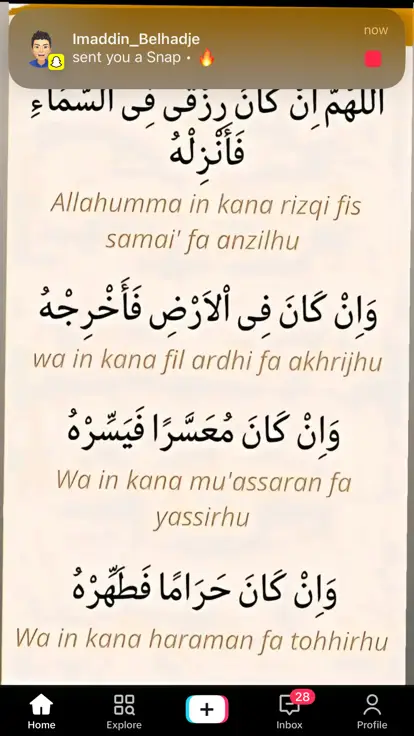 Imaddin_Belhadje
now
sent you a Snap • 🔥
اَللّٰهُمَّ اِنْ كَانَ رِزْقِى فِى السَّمَاءِ
فَأَنْزِلْهُ
Allahumma in kana rizqi fis
samai' fa anzilhu
وَاِنْ كَانَ فِى اْلاَرْضِ فَأَخْرِجْهُ
wa in kana fil ardhi fa akhrijhu
وَاِنْ كَانَ مُعَسَّرًا فَيَسِّرْهُ
Wa in kana mu'assaran fa
yassirhu
وَاِنْ كَانَ حَرَامًا فَطَهِّرْهُ
Wa in kana haraman fa tohhirhu
28
Home
Explore
Inbox
Profile